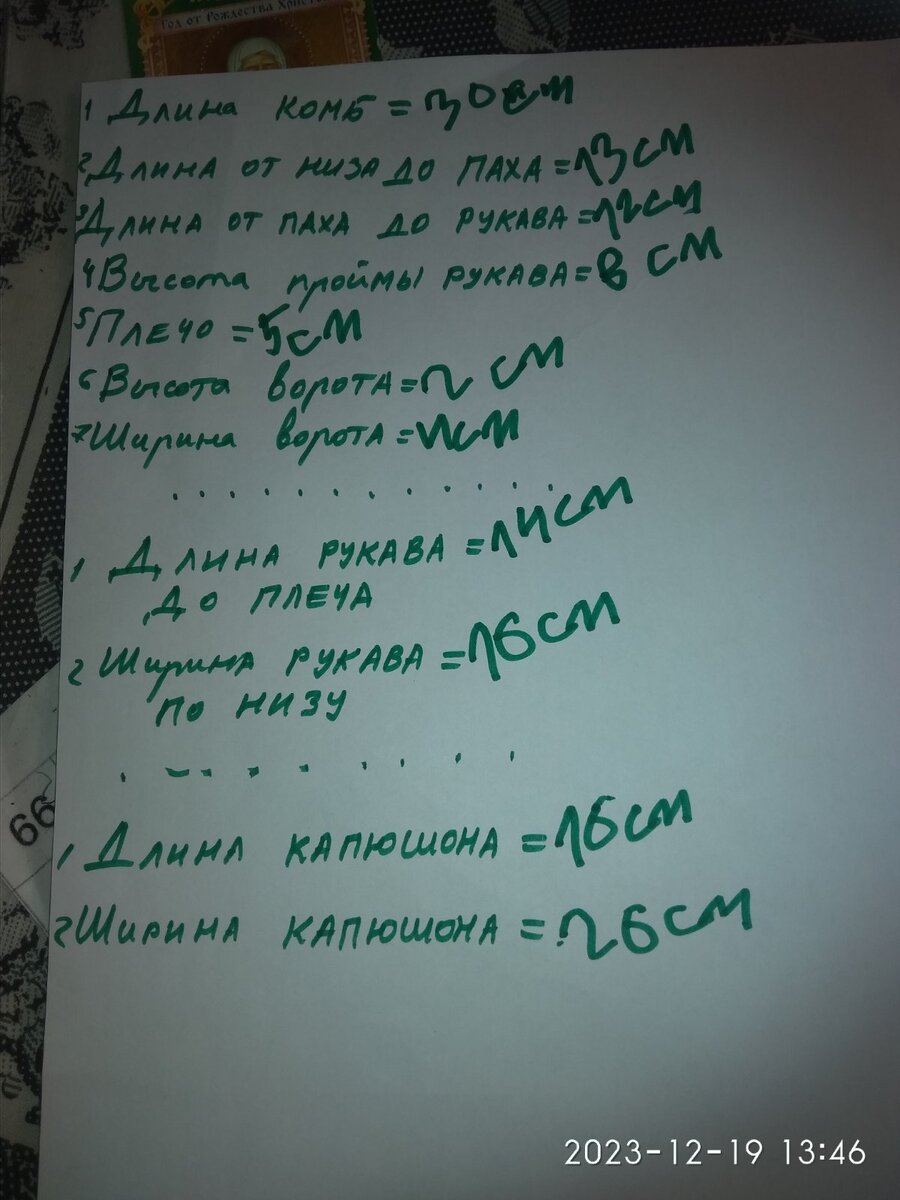 Год от Рождества Христо
1 Длина комб = 30 см
2 Длина от низа до паха = 13 см
3 Длина от паха до рукава = 12 см
4 Высота проймы рукава = 8 см
5 Плечо = 5 см
6 Высота ворота = 2 см
7 Ширина ворота =
. . . . . . . . . . . . .
1 Длина рукава = 14 см
до плеча
2 Ширина рукава = 16 см
по низу
. - . . . . . .
66
1 Длина капюшона = 16 см
2 Ширина капюшона = 26 см
2023-12-19 13:46